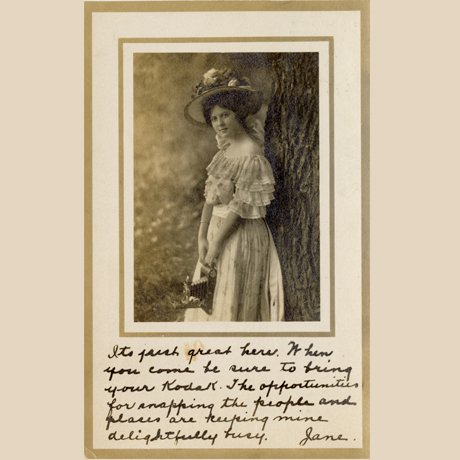 Its just great here. When
you come be sure to bring
your Kodak. The opportunities
for snapping the people and
plases are keeping mine
delightfully busy. Jane.